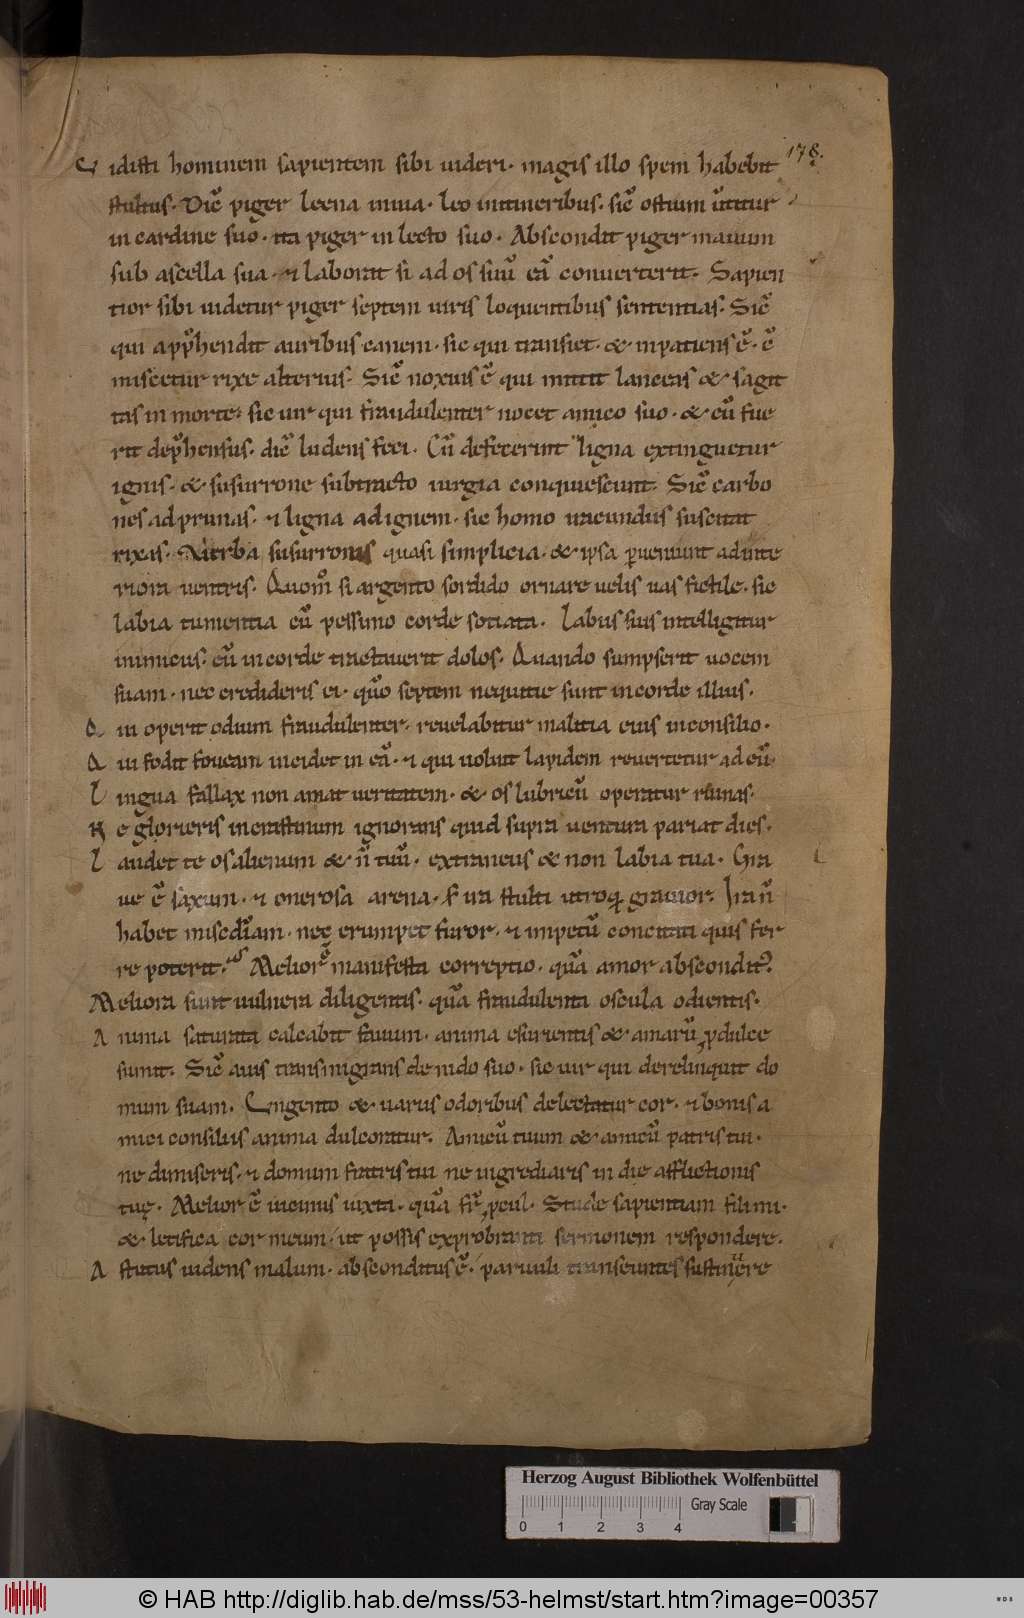 Vidisti hominem sapientem sibi uideri. magis illo spem habebit
178.
stultus. Dic̄ piger leena in uia. leo in itineribus. sic̄ ostium ūtitur
in cardine suo. ita piger in lecto suo. Abscondit piger manum
sub ascella sua. ⁊ laborat si ad os suū eā conuerterit. Sapien
tior sibi uidetur piger septem uiris loquentibus sententias. Sic̄
qui app̄hendit auribus canem. sic qui transiet. & inpatiens ē. ⁊
miscetur rixe alterius. Sic̄ noxius ē qui mittit lanceas & sagit
tas in morte; sic uir qui fraudulenter nocet amico suo. & cū fue
rit dep̄hensus. dic̄ ludens feci. Cū defecerint ligna extinguetur
ignis. & susurrone subtracto iurgia conquiescunt. Sic̄ carbo
nes ad prunas. ⁊ ligna ad ignem. sic homo iracundus suscitat
rixas. Verba susurronis quasi simplicia. & ipsa ꝑueniunt ad inte
riora uentris. Quom̄ si argento sordido ornare uelis uas fictile. sic
labia tumentia cū pessimo corde sotiata. Labiis suis intelligitur
inimicus. cū in corde tractauerit dolos. Quando sumpserit uocem
suam. nec credideris ei. qūo septem nequitie sunt in corde illius.
Qui operit odium fraudulenter. reuelabitur malitia eius in consilio.
Qui fodit foueam incidet in eā. ⁊ qui uoluit lapidem reuertetur ad eū.
Lingua fallax non amat ueritatem. & os lubricū operatur ruinas.
Ne glorieris in crastinum ignorans quid supra uentura pariat dies.
Laudet te os alienum & n̄ tuū. extraneus & non labia tua. Gra
ue ē saxum. ⁊ onerosa arena. s; ira stulti utroq; grauior. Ira n̄
habet misc̄diam. nec erumpet furor. ⁊ impetū concitati quis fer
re poterit. Melior ē manifesta correptio. quā amor absconditꝰ.
Meliora sunt uulnera diligentis. quā fraudulenta oscula odientis.
Anima saturata calcabit fauum. anima esurientis & amarū ꝓ dulce
sumit. Sic̄ auis transmigrans de nido suo. sic uir qui derelinquit do
mum suam. Ungento & uariis odoribus delectatur cor. ⁊ bonis a
mici consiliis anima dulcoratur. Amicū tuum & amicū patris tui.
ne dimiseris. ⁊ domum fratris tui ne ingrediaris in die afflictionis
tuę. Melior ē uicinus iuxta. quā fr̄ ꝓcul. Stude sapientiam fili mi.
& letifica cor meum. ut possis exprobranti sermonem respondere.
Astutus uidens malum. absconditus ē. paruuli transeuntes sustinuere
Herzog August Bibliothek Wolfenbüttel
Gray Scale
0 1 2 3 4
© HAB http://diglib.hab.de/mss/53-helmst/start.htm?image=00357